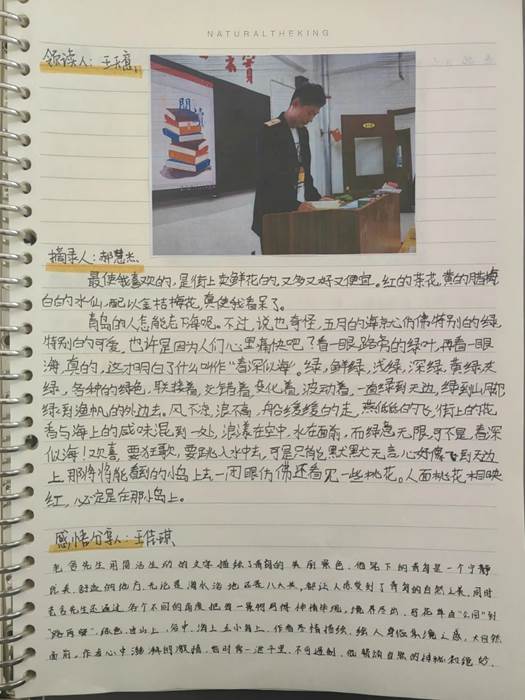 NATURALTHEKING
领读人：王禹熹
阅读
摘录人：郝慧杰
最使我喜欢的，是街上卖鲜花的，又多又好又便宜。红的茶花，黄的腊梅
白的水仙，配以金桔梅花，真使我看呆了。
青岛的人怎能忘下海呢。不过，说也奇怪，五月的海就仿佛特别的绿，
特别的可爱，也许是因为人们心里痛快吧？看一眼路旁的绿叶，再看一眼
海，真的，这才明白了什么叫作"春深似海"。绿，鲜绿，浅绿，深绿，黄绿，灰
绿，各种的绿色，联接着，交错着，变化着，波动着，一直绿到天边，绿到山脚，
绿到渔帆的外边去。风不凉，浪不高，船缓缓的走，燕低低的飞，街上的花
香与海上的咸味混到一处，浪漾在空中，水在面前，而绿意无限，可不是，春深
似海！欢喜，要狂歌，要跳入水中去，可是只能默默无言，心好像飞到天边
上那将将能看到的小岛上去，一闭眼仿佛还看见一些桃花。人面桃花相映
红，必定是在那小岛上。
感悟分享人：王佳琪
老舍先生用简洁生动的文字描绘了青岛的美丽景色，他笔下的青岛是一个宁静
优美、舒适的地方，无论是海水浴地还是八大关，都让人感受到了青岛的自然之美，同时
老舍先生还通过各个不同的角度把每一景物写得神情毕现，境界尽出，写花草由"公园"到
"路两壁"，绿色，由山上，谷中，海上至小岛上，作者尽情描绘，给人身临其境之感，大自然
面前，作者心中激起的激情，有时像一泻千里，不可遏制，他赞颂自然的神秘和绝妙，